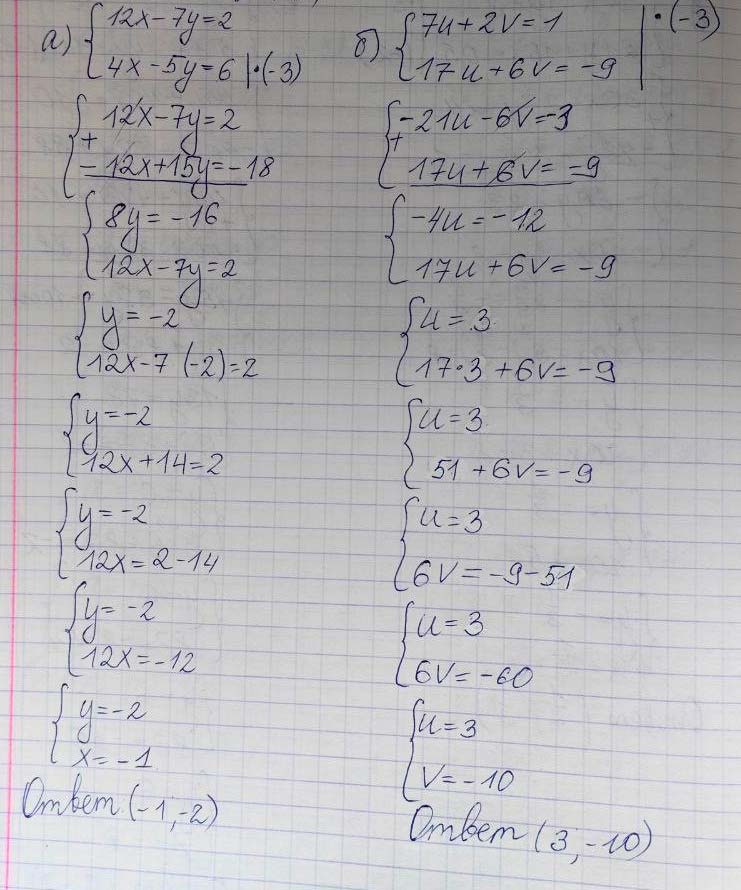 а) 12x-7y=2
4x-5y=6 |·(-3)
12x-7y=2
+
-12x+15y=-18
8y=-16
12x-7y=2
y=-2
12x-7(-2)=2
y=-2
12x+14=2
y=-2
12x=2-14
y=-2
12x=-12
y=-2
x=-1
Ответ (-1,-2)
б) 7u+2v=1 |·(-3)
17u+6v=-9
-21u-6v=-3
+
17u+6v=-9
-4u=-12
17u+6v=-9
u=3
17·3+6v=-9
u=3
51+6v=-9
u=3
6v=-9-51
u=3
6v=-60
u=3
v=-10
Ответ (3,-10)